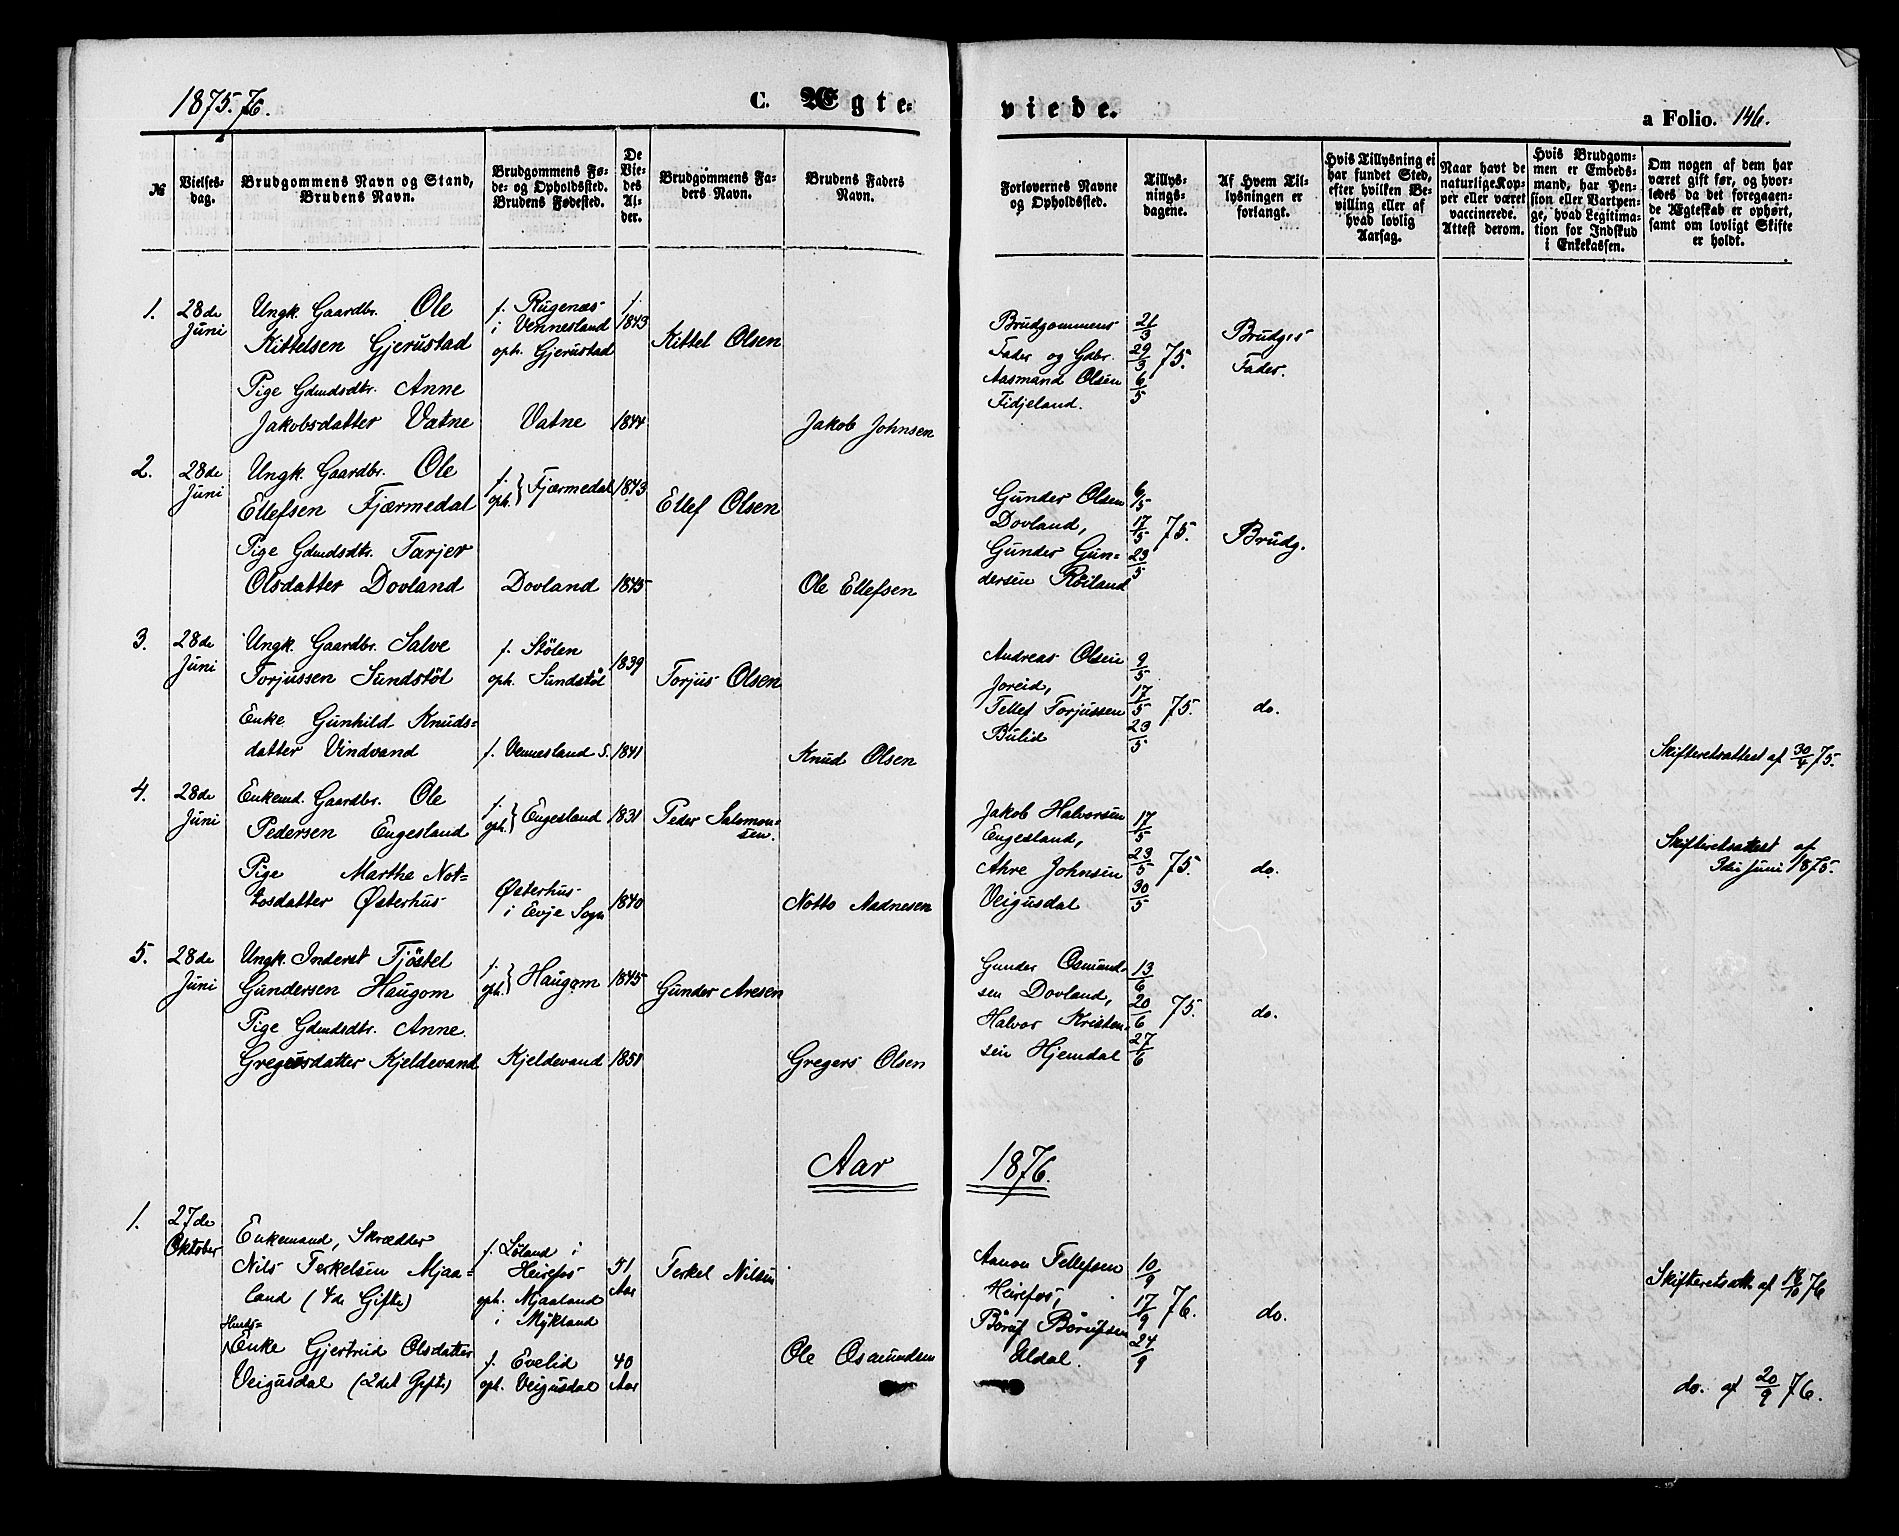 1875.76.
C. Ægte-
viede.
a Folio. 146.
№
Vielses-
dag.
Brudgommens Navn og Stand,
Brudens Navn.
Brudgommens Fø-
de- og Opholdssted.
Brudens Fødested.
De
Vie-
des
Al-
der.
Brudgommens Fa-
ders Navn.
Brudens Faders
Navn.
Forlovernes Navne
og Opholdssted.
Tillys-
nings-
dagene.
Af Hvem Til-
lysningen er
forlangt.
Hvis Tillysning ei
har fundet Sted,
efter hvilken Be-
villing eller af
hvad lovlig
Aarsag.
Naar havt de
naturlige Kop-
per eller været
vaccinerede.
Attest derom.
Hvis Brudgom-
men er Embeds-
mand, har Pen-
sion eller Vartpen-
ge, hvad Legitima-
tion for Indskud
i Enkekassen.
Om nogen af dem har
været gift før, og hvor-
ledes da det foregaaen-
de Ægteskab er ophørt,
samt om lovligt Skifte
er holdt.
1.
28de
Juni
Ungk. Gaardbr. Ole
Kittelsen Gjerustad
Pige Gdmdsdtr. Anne
Jakobsdatter Vatne
f. Rugenæs
i Vennesland
oph. Gjerustad
Vatne
1843
1844
Kittel Olsen
Jakob Johnsen
Brudgommens
Fader og Gdbr.
Aasmund Olsen
Fidjeland.
21/3
29/3 75.
6/5
Brudges
Fader.
2.
28de
Juni
Ungk. Gaardbr. Ole
Ellefsen Fjærmedal
Pige Gdmdsdtr. Tarjer
Olsdatter Dovland
f.
oph. } Fjærmedal
Dovland
1843
1845
Ellef Olsen
Ole Ellefsen
Gunder Olsen
Dovland,
Gunder Gun-
dersen Røiland
6/5
17/5 75.
23/5
Brudg.
3.
28de
Juni
Ungk. Gaardbr. Salve
Torjussen Sundstøl
Enke Gunhild Knuds-
datter Vindvand
f. Stølen
oph. Sundstøl
f. Vennesland S.
1839
1841
Torjus Olsen
Knud Olsen
Andreas Olsen
Joreid,
Tellef Torjussen
Bulid
9/5
17/5 75.
23/5
do.
Skifteretsattest af 30/4 75.
4.
28de
Juni
Enkemd. Gaardbr. Ole
Pedersen Engesland
Pige Marthe Not-
tosdatter Østerhus
f.
oph. } Engesland
Østerhus
i Evje Sogn
1831
1840
Peder Salomon-
sen.
Notto Aadnesen
Jakob Halvorsen
Engesland,
Ahre Johnsen
Veigusdal
17/5
23/5 75.
30/5
do.
Skifteretsattest af
Juni 1875.
5.
28de
Juni
Ungk. Inderst Tjöstel
Gundersen Haugom
Pige Gdmdsdtr. Anne
Gregersdatter Kjeldevand
f.
oph. } Haugom
Kjeldevand
1845
1851
Gunder Aresen
Gregers Olsen
Gunder Osmund-
sen Dovland,
Halvor Kristen-
sen Hjemdal
13/6
20/6 75.
27/6
do.
Aar 1876.
1.
27de
Oktober
Enkemand, Skrædder
Nils Terkelsen Mjaa-
land (4de Gifte)
Huuds-
Enke Gjertrud Olsdatter
Veigusdal (2det Gifte)
f. Løland i
Heirefos
oph. Mjaaland
i Mykland
f. Evelid
oph. Veigusdal
51
Aar
40
Aar
Terkel Nilsen
Ole Osmundsen
Aanon Tellefsen
Heirefos,
Børuf Børufsen
Uldal.
10/9
17/9 76.
24/9
do.
Skifteretsatt. af 16/10 76
do. af 20/9 76.